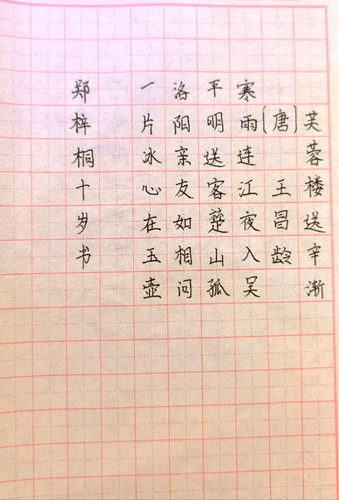 芙蓉楼送辛渐
〔唐〕王昌龄
寒雨连江夜入吴
平明送客楚山孤
洛阳亲友如相问
一片冰心在玉壶
郑梓桐十岁书